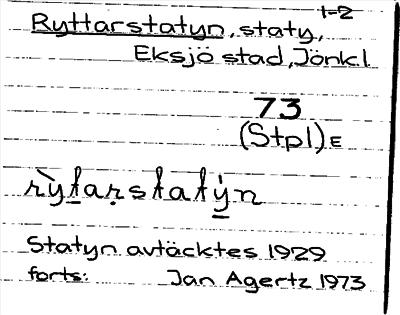 1-2
Ryttarstatyn, staty,
Eksjö stad, Jönk.l.
73
(Stpl) E
rỳt̲aṛstatý̲n
Statyn avtäcktes 1929
forts: Jan Agertz 1973